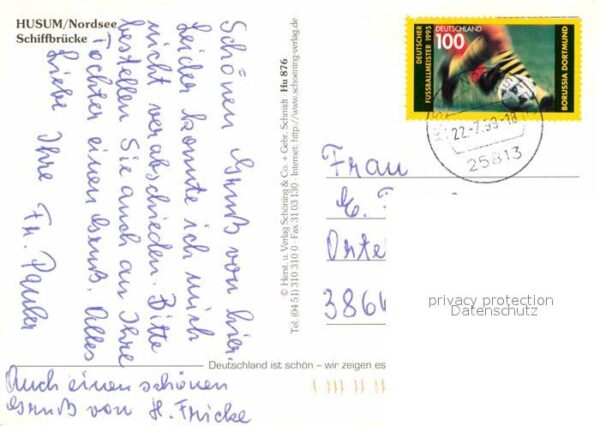 HUSUM/Nordsee
Schiffbrücke
Schönen Gruß von hier.
Leider konnte ich mich
nicht verabschieden. Bitte
bestellen Sie auch an Ihre
Tochter einen Gruß. Alles
Liebe Ihre Fr. Pauler
Auch einen schönen
Gruß von H. Fricke
Hu 876
© Herst. u. Verlag Schöning & Co. + Gebr. Schmidt
Tel. (04 51) 310 310 0 · Fax 31 03 130 · Internet: http://www.schoening-verlag.de
Deutschland ist schön – wir zeigen es
DEUTSCHER
FUSSBALLMEISTER 1995
DEUTSCHLAND
100
BORUSSIA DORTMUND
25813
Frau
E.
Orte
3864
privacy protection
Datenschutz